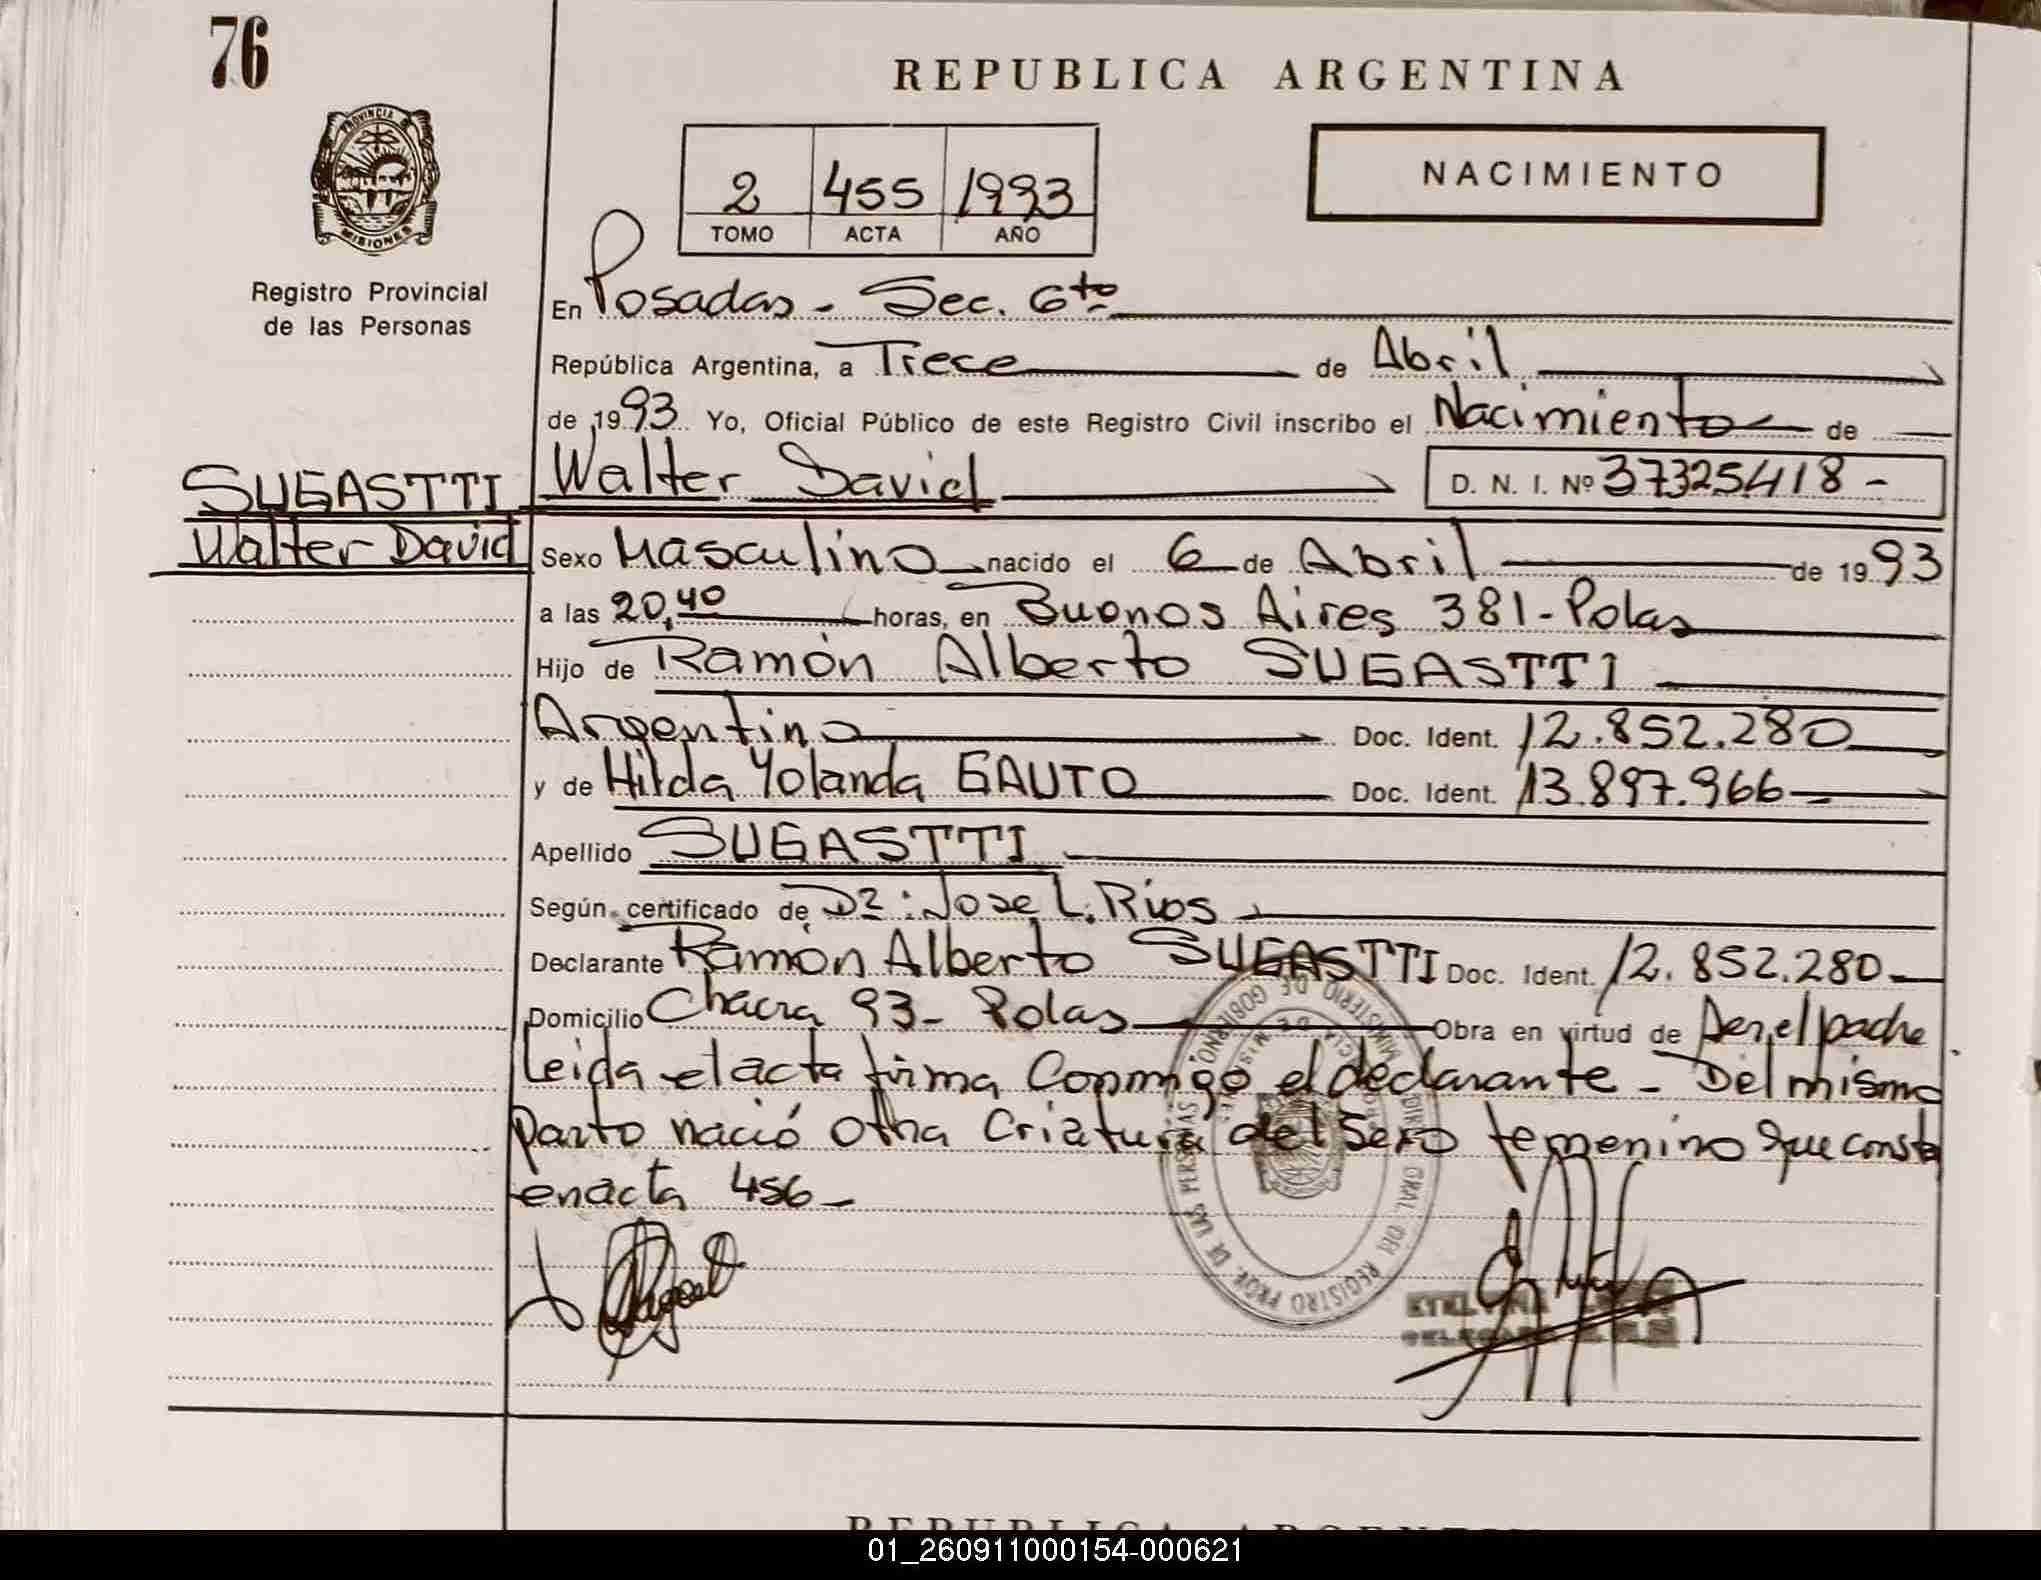 76
REPUBLICA ARGENTINA
PROVINCIA DE
MISIONES
Registro Provincial
de las Personas
2 455 1993
TOMO ACTA AÑO
NACIMIENTO
En Posadas - Sec. 6to
República Argentina, a Trece de Abril
de 1993 Yo, Oficial Público de este Registro Civil inscribo el Nacimiento de
SUGASTTI Walter David D. N. I. Nº 37325418 -
Walter David
Sexo Masculino nacido el 6 de Abril de 1993
a las 20,40 horas, en Buenos Aires 381 - Pdas
Hijo de Ramón Alberto SUGASTTI
Argentino Doc. Ident. 12.852.280
y de Hilda Yolanda GAUTO Doc. Ident. 13.897.966
Apellido SUGASTTI
Según certificado de Dr: Jose L. Rios
Declarante Ramón Alberto SUGASTTI Doc. Ident. 12.852.280
Domicilio Chacra 93 - Pdas Obra en virtud de ser el padre
Leida el acta firma Conmigo el declarante - Del mismo
parto nació otra Criatura del Sexo femenino que consta
en acta 456 -
MINISTERIO DE GOBIERNO
DIR. GRAL. DEL REGISTRO PROV. DE LAS PERSONAS
REPUBLICA ARGENTINA
01_260911000154-000621